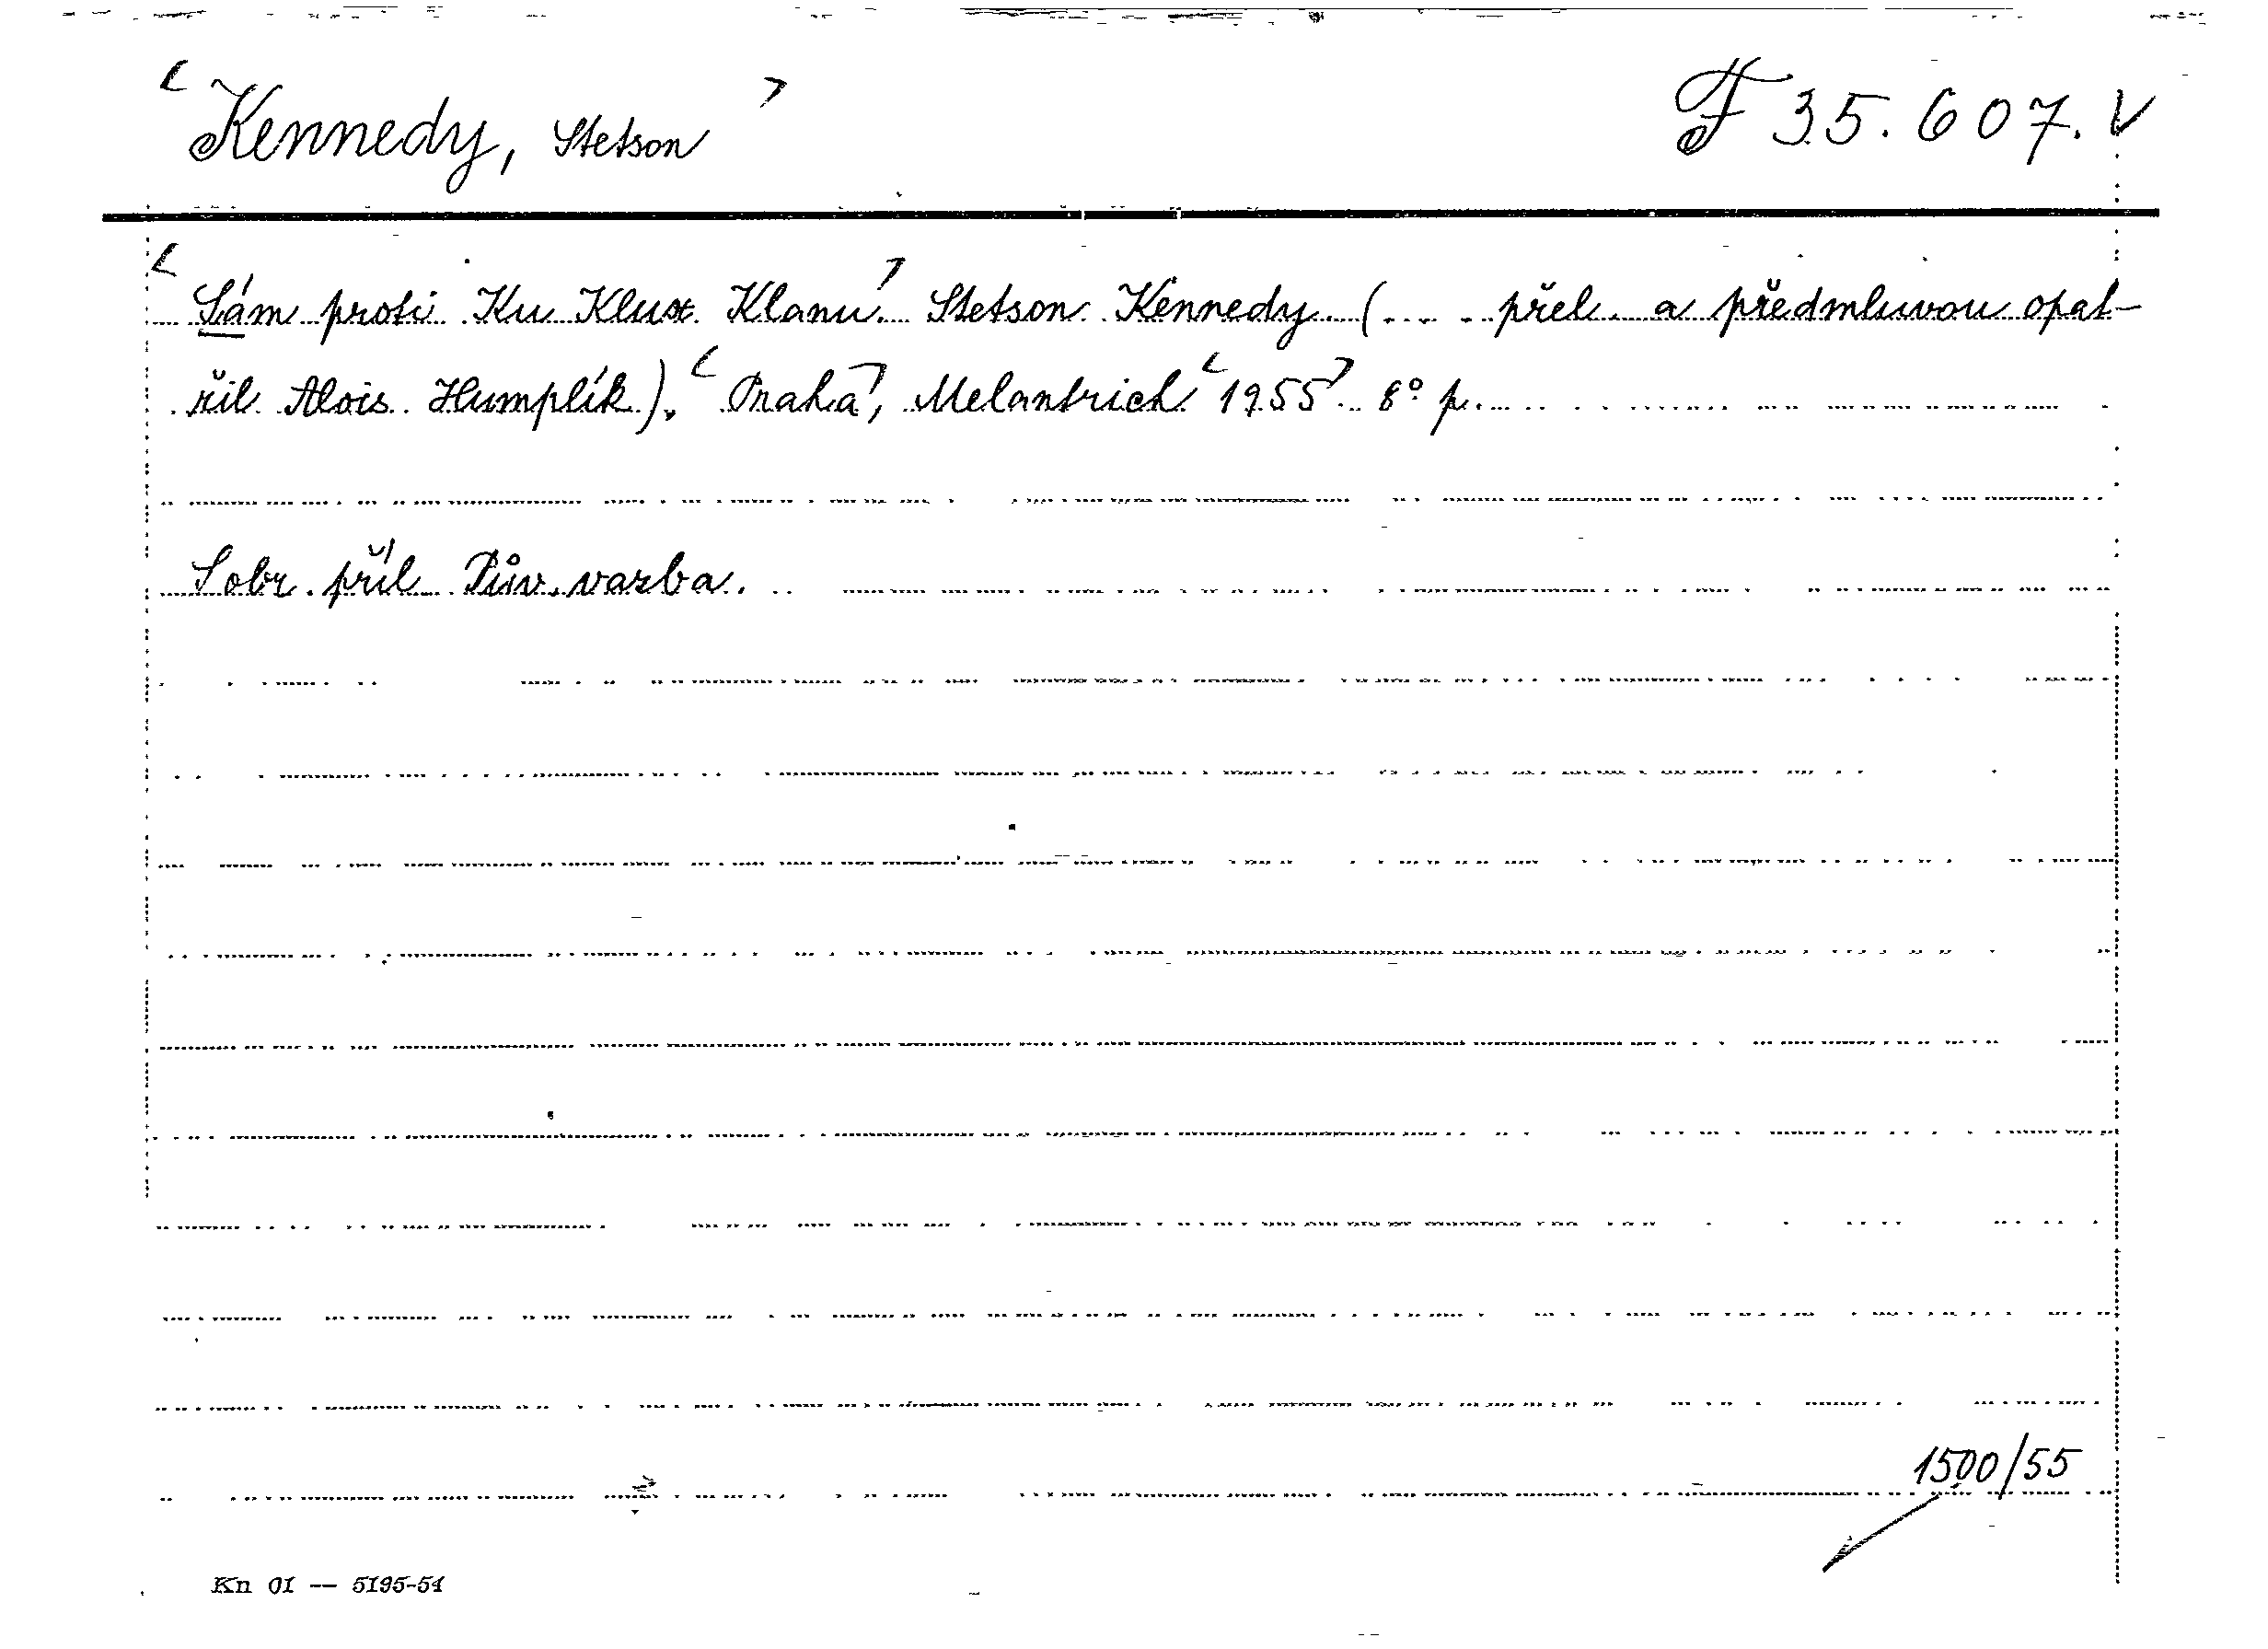 Kennedy, Stetson
F 35.607.
Sám proti Ku Klux Klanu. Stetson Kennedy. (... přel. a předmluvou opat-
řil Alois Humplík). Praha, Melantrich 1955. 8° p.
S obr. příl. Pův. vazba.
1500/55
Kn 01 -- 5195-54